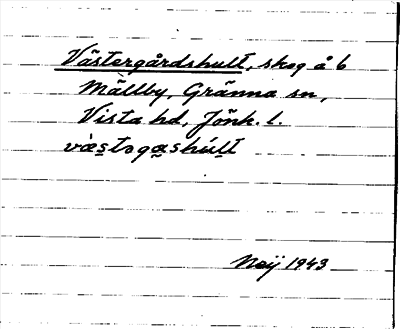 Västergårdshult, skog å 6
Mällby, Gränna sn,
Vista hd, Jönk. l.
væstəgashúlt
1943